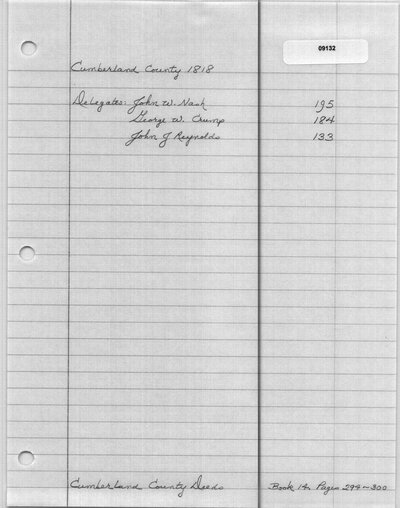 09132
Cumberland County 1818
Delegates: John W. Nash 195
George W. Crump 184
John J Reynolds 133
Cumberland County Deeds Book 14, Pages 299~300